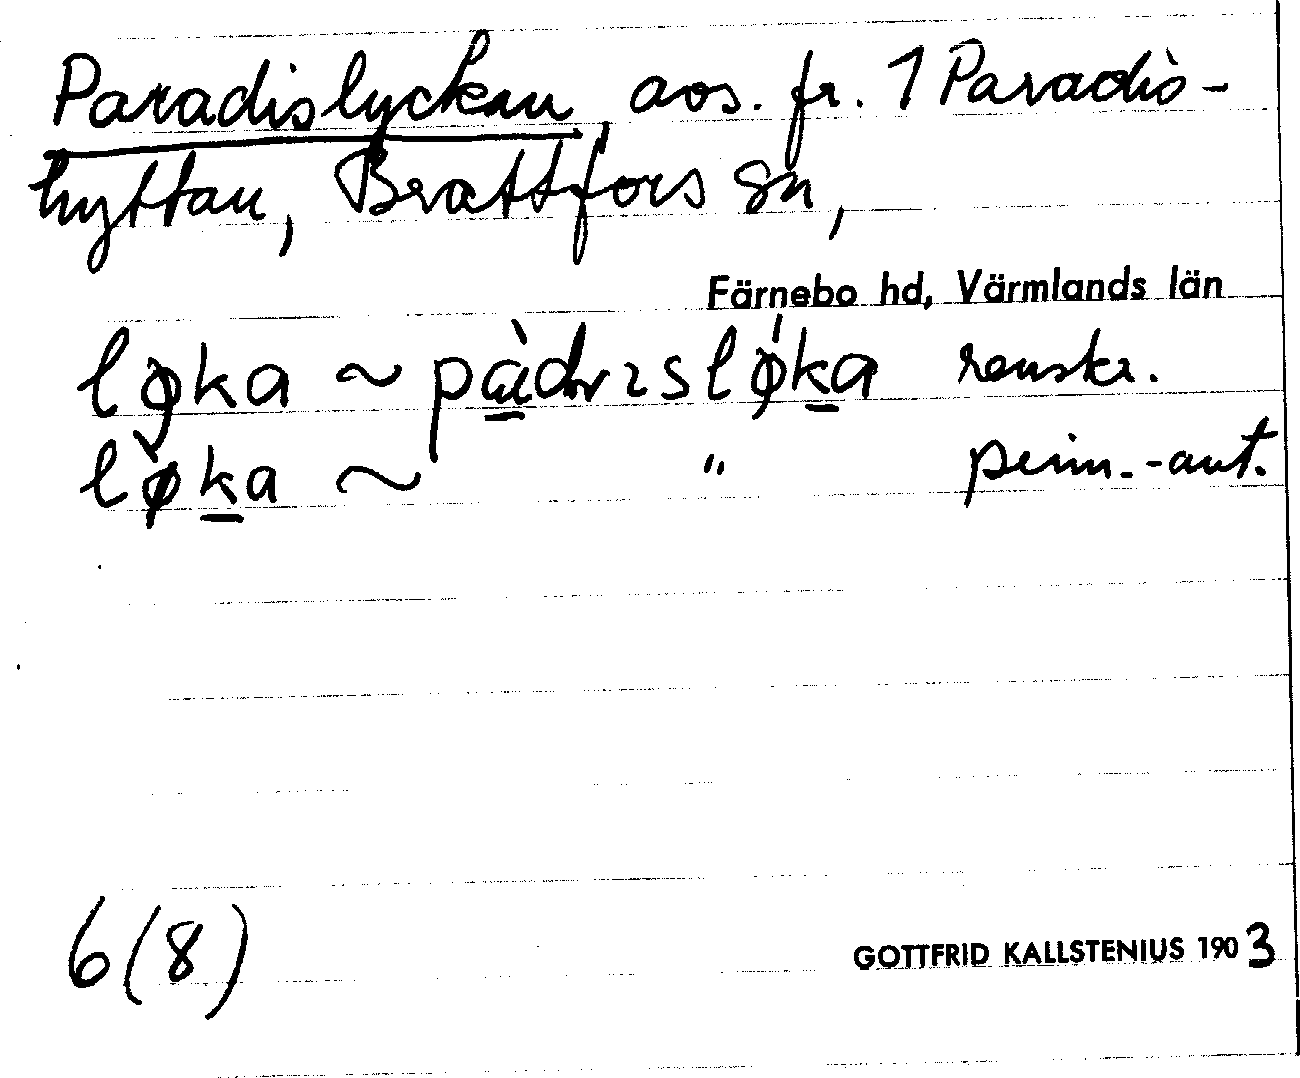 Paradislyckan, avs. fr. 1 Paradis-
hyttan, Brattfors sn,
Färnebo hd, Värmlands län
løka ~ pàdɩsløka renskr.
lø̀ka ~ " prim.-ant.
6(8)
GOTTFRID KALLSTENIUS 1903